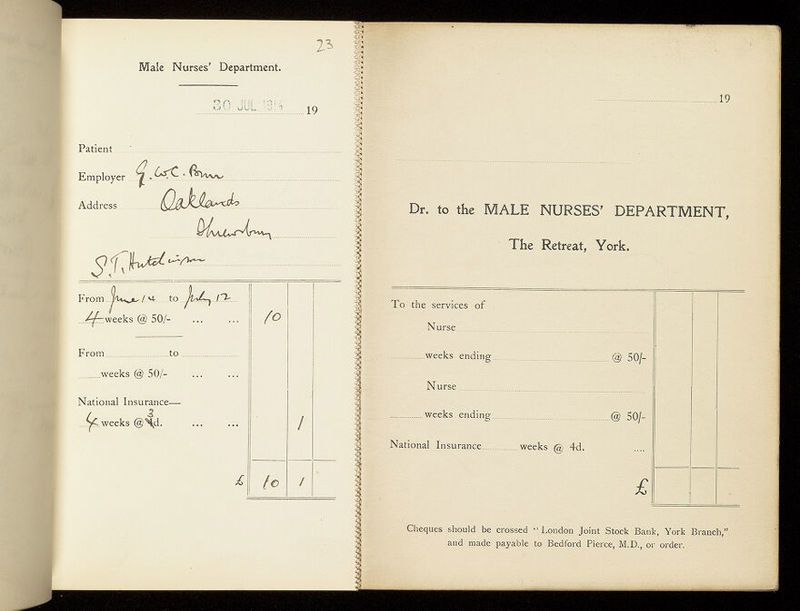 23
Male Nurses' Department.
30 JUL 1914 19
Patient
Employer G. W. C.
Address Oaklands
Shrewsbury
S. T. Hutchinson
From June 14 to July 12
4 weeks @ 50/- ... ... 10
From to
weeks @ 50/- ... ...
National Insurance—
4 weeks @ 3 4d. ... ... 1
£ 10 1
19
Dr. to the MALE NURSES' DEPARTMENT,
The Retreat, York.
To the services of
Nurse
weeks ending @ 50/-
Nurse
weeks ending @ 50/-
National Insurance weeks @ 4d. ....
£
Cheques should be crossed "London Joint Stock Bank, York Branch,"
and made payable to Bedford Pierce, M.D., or order.